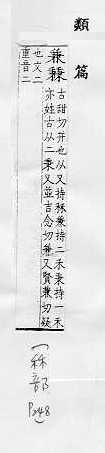 類篇
兼
古甜切并也从又持秝兼持二禾秉持一禾
亦姓古从二秉又並吉念切兼又賢兼切疑
也文二
重音二
(秝部
P248)